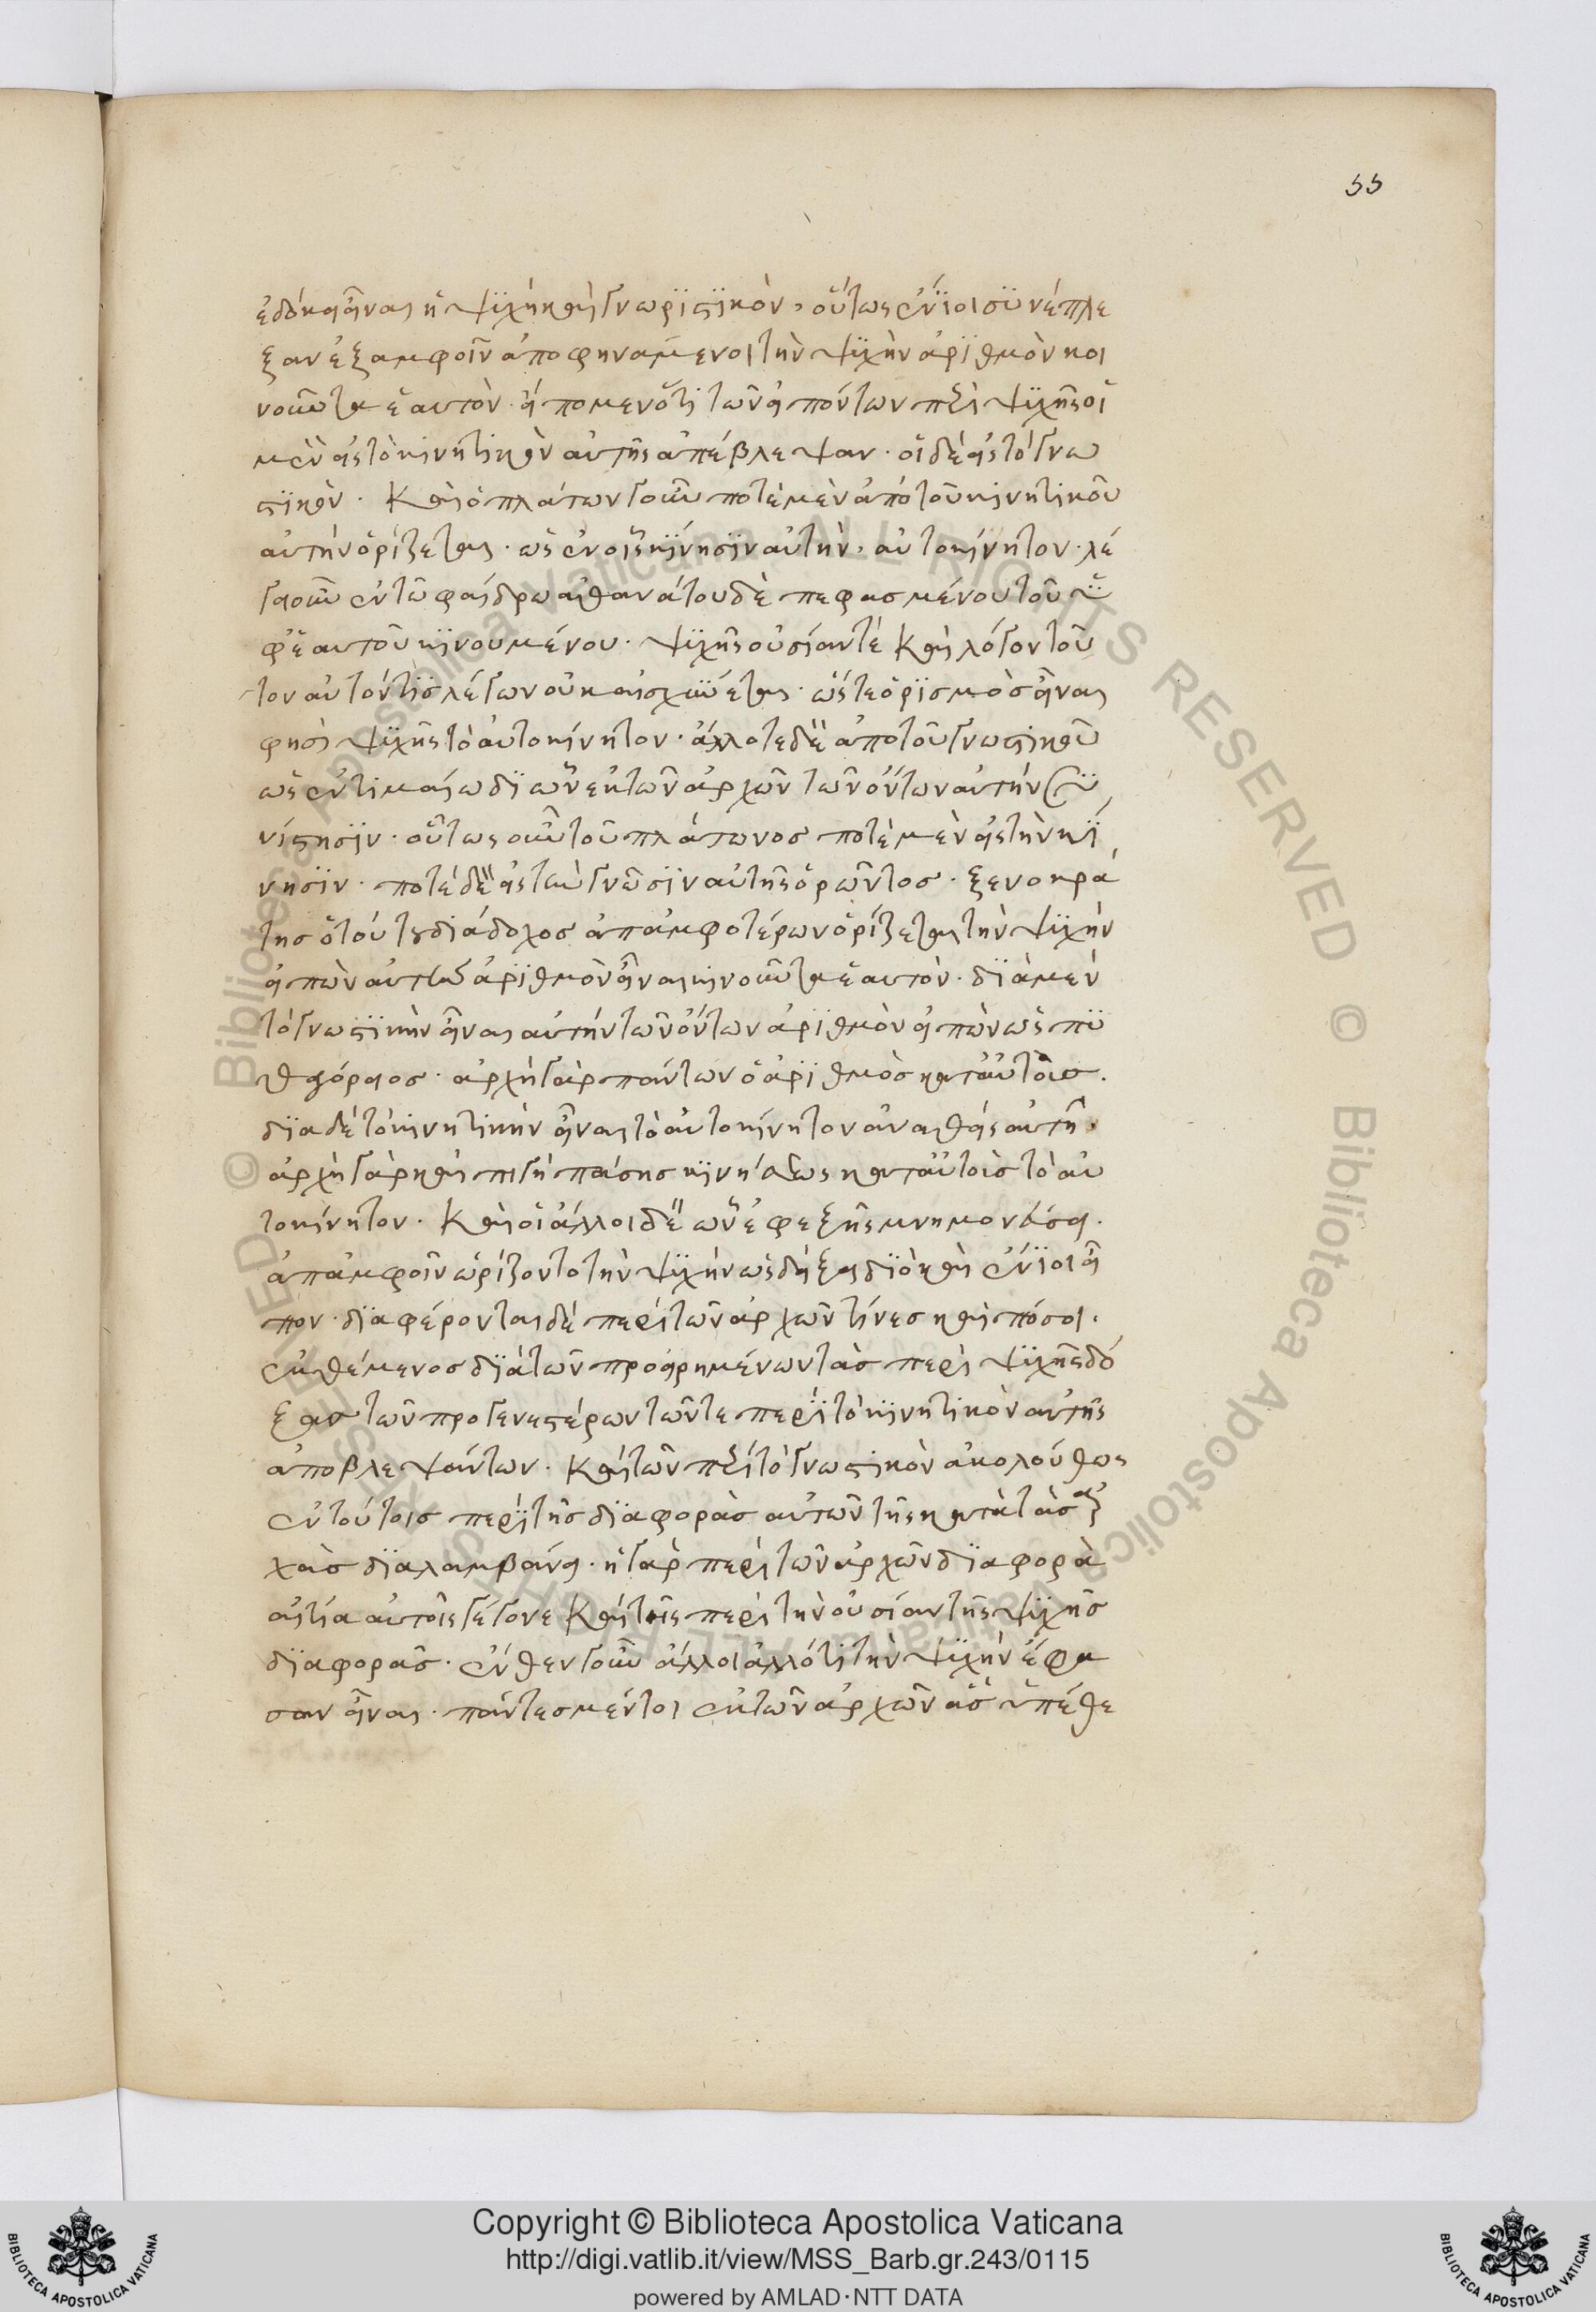 55
ἐδόκει εἶναι ἡ ψϋχὴ καὶ γνωρϊστϊκὸν, οὕτως ἔνϊοι σϋνέπλε
ξαν ἐξ ἀμφοῖν ἀποφηνάμενοι τὴν ψϋχὴν ἀρϊθμὸν κοι
νοῦντα ἑαυτόν· εἴπομεν ὅτι τῶν εἰπόντων περὶ ψϋχῆς οἱ
μὲν εἰς τὸ κινητικὸν αὐτῆς ἀπέβλεψαν· οἱ δὲ εἰς τὸ γνω
στϊκόν· Καὶ ὁ πλάτων γοῦν ποτὲ μὲν ἀπὸ τοῦ κινητικοῦ
αὐτὴν ὁρίζεται· ὡς ἐν οἷς κϊνησϊν αὐτὴν, αὐτοκίνητον· λέ
γει οὖν ἐν τῷ φαίδρω ἀθανάτου δὲ πεφασμένου τοῦ ϋ
φ' ἑαυτοῦ κϊνουμένου· ψϋχῆς οὐσίαν τὲ Καὶ λόγον τοῦ
τον αὐτόν τϊς λέγων οὐκ αἰσχϋνεται· ὥστε ὁρϊσμὸς εἶναι
φησὶ ψϋχῆς τὸ αὐτοκίνητον· ἄλλοτε δὲ ἀπὸ τοῦ γνωστικοῦ
ὡς ἐν τιμαίω δϊ ὧν ἐκ τῶν ἀρχῶν τῶν ὄντων αὐτὴν σϋ
νίστησϊν· οὕτως οὖν τοῦ πλάτωνος ποτὲ μὲν εἰς τὴν κϊ
νησϊν· ποτὲ δὲ εἰς τὴν γνῶσϊν αὐτῆς ὁρῶντος· ξενοκρά
της ὁ τούτου διάδοχος ἀπ' ἀμφοτέρων ὁρίζεται τὴν ψϋχήν
εἰπὼν αὐτὴν ἀρϊθμὸν εἶναι κινοῦντα ἑαυτόν· δϊὰ μὲν
τὸ γνωστϊκὴν εἶναι αὐτὴν τῶν ὄντων ἀρϊθμὸν εἰπὼν ὡς πϋ
θαγόρειος· ἀρχὴ γὰρ πάντων ὁ ἀρϊθμὸς κατ' αὐτοὺς·
δϊα δὲ τὸ κινητικὴν εἶναι τὸ αὐτοκίνητον ἀναθεὶς αὐτῇ·
ἀρχὴ γὰρ καὶ πιγὴ πάσης κϊνήσεως κατ' αὐτοὺς τὸ αὐ
τοκίνητον· Καὶ οἱ ἄλλοι δὲ ὧν ἐφεξῆς μνημονεύσει·
ἀπ' ἀμφοῖν ὡρίζοντο τὴν ψϋχὴν ὡς δείξει δϊὸ καὶ ἔνϊοι εἶ
πον· δϊαφέρονται δὲ περὶ τῶν ἀρχῶν τίνες καὶ πόσαι·
ἐκθέμενος δϊὰ τῶν προειρημένων τὰς περὶ ψϋχῆς δό
ξας τῶν προγενεστέρων τῶν τε περὶ τὸ κϊνητικὸν αὐτῆς
ἀποβλεψάντων· Καὶ τῶν περὶ τὸ γνωστικὸν ἀκολούθως
ἐν τούτοις περὶ τῆς δϊαφορὰς αὐτῶν τῆς κατὰ τὰς ἀρ
χὰς δϊαλαμβάνει· ἡ γὰρ περὶ τῶν ἀρχῶν δϊαφορὰ
αἰτία αὐτοῖς γέγονε Καὶ τῆς περὶ τὴν οὐσίαν τῆς ψϋχῆς
δϊαφορᾶς· ἔνθεν γοῦν ἄλλοι ἄλλό τι τὴν ψϋχὴν ἔφα
σαν εἶναι· πάντες μέντοι ἐκ τῶν ἀρχῶν ἃς ὑπέθε
Copyright © Biblioteca Apostolica Vaticana
http://digi.vatlib.it/view/MSS_Barb.gr.243/0115
powered by AMLAD·NTT DATA